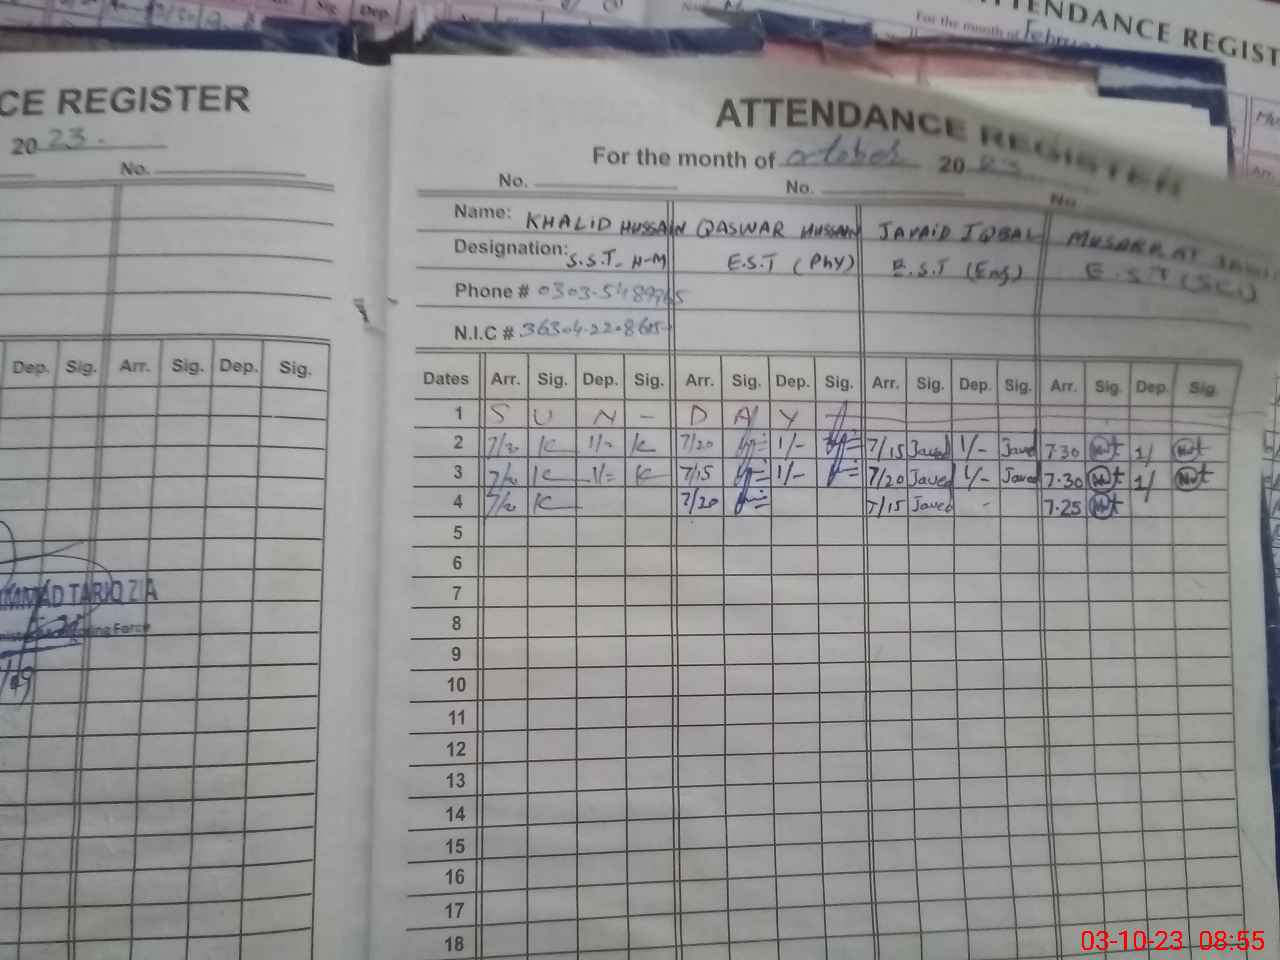 Sig. Dep.
TTENDANCE REGIST
For the month of Februa
CE REGISTER
20 23.
No.
Dep. Sig. Arr. Sig. Dep. Sig.
TARIQ ZIA
ATTENDANCE REGISTER
For the month of october 20 23
No. No. No.
Name: KHALID HUSSAIN QASWAR HUSSAIN JAVAID IQBAL MUSARRAT
Designation: S.S.T- H-M E.S.T (PHY) E.S.T (Eng) E.S.T (Sci)
Phone #
N.I.C #
Dates Arr. Sig. Dep. Sig. Arr. Sig. Dep. Sig. Arr. Sig. Dep. Sig. Arr. Sig. Dep. Sig.
1 S U N - D A Y
2 7/20 K 1/- K 7/20 1/- 7/15 Javed 1/- Javed 7.30 1/
3 7/20 K 1/= K 7/15 1/- 7/20 Javed 1/- Javed 7.30 1/
4 7/20 K 7/20 7/15 Javed - 7.25
5
6
7
8
9
10
11
12
13
14
15
16
17
18
03-10-23 08:55